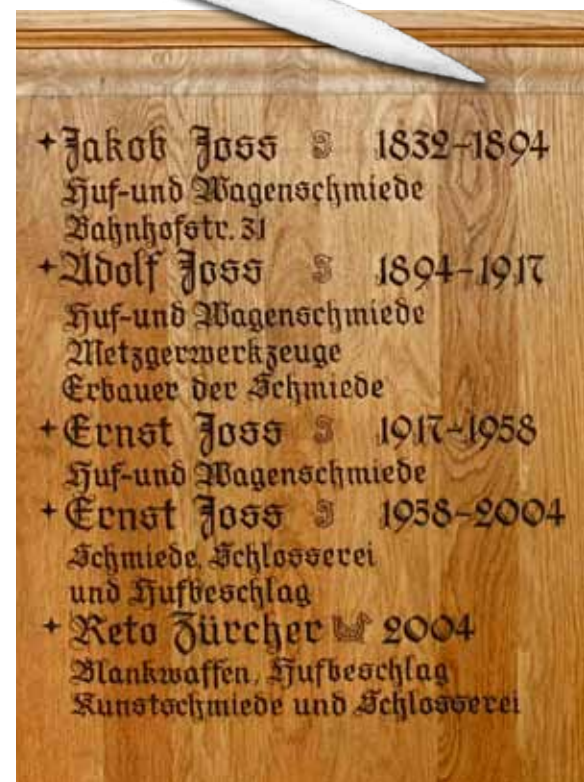 Jakob Joss J 1832-1894
Huf-und Wagenschmiede
Bahnhofstr. 31
Adolf Joss J 1894-1917
Huf-und Wagenschmiede
Metzgerwerkzeuge
Erbauer der Schmiede
Ernst Joss J 1917-1958
Huf-und Wagenschmiede
Ernst Joss J 1958-2004
Schmiede, Schlosserei
und Hufbeschlag
Reto Zürcher 2004
Blankwaffen, Hufbeschlag
Kunstschmiede und Schlosserei